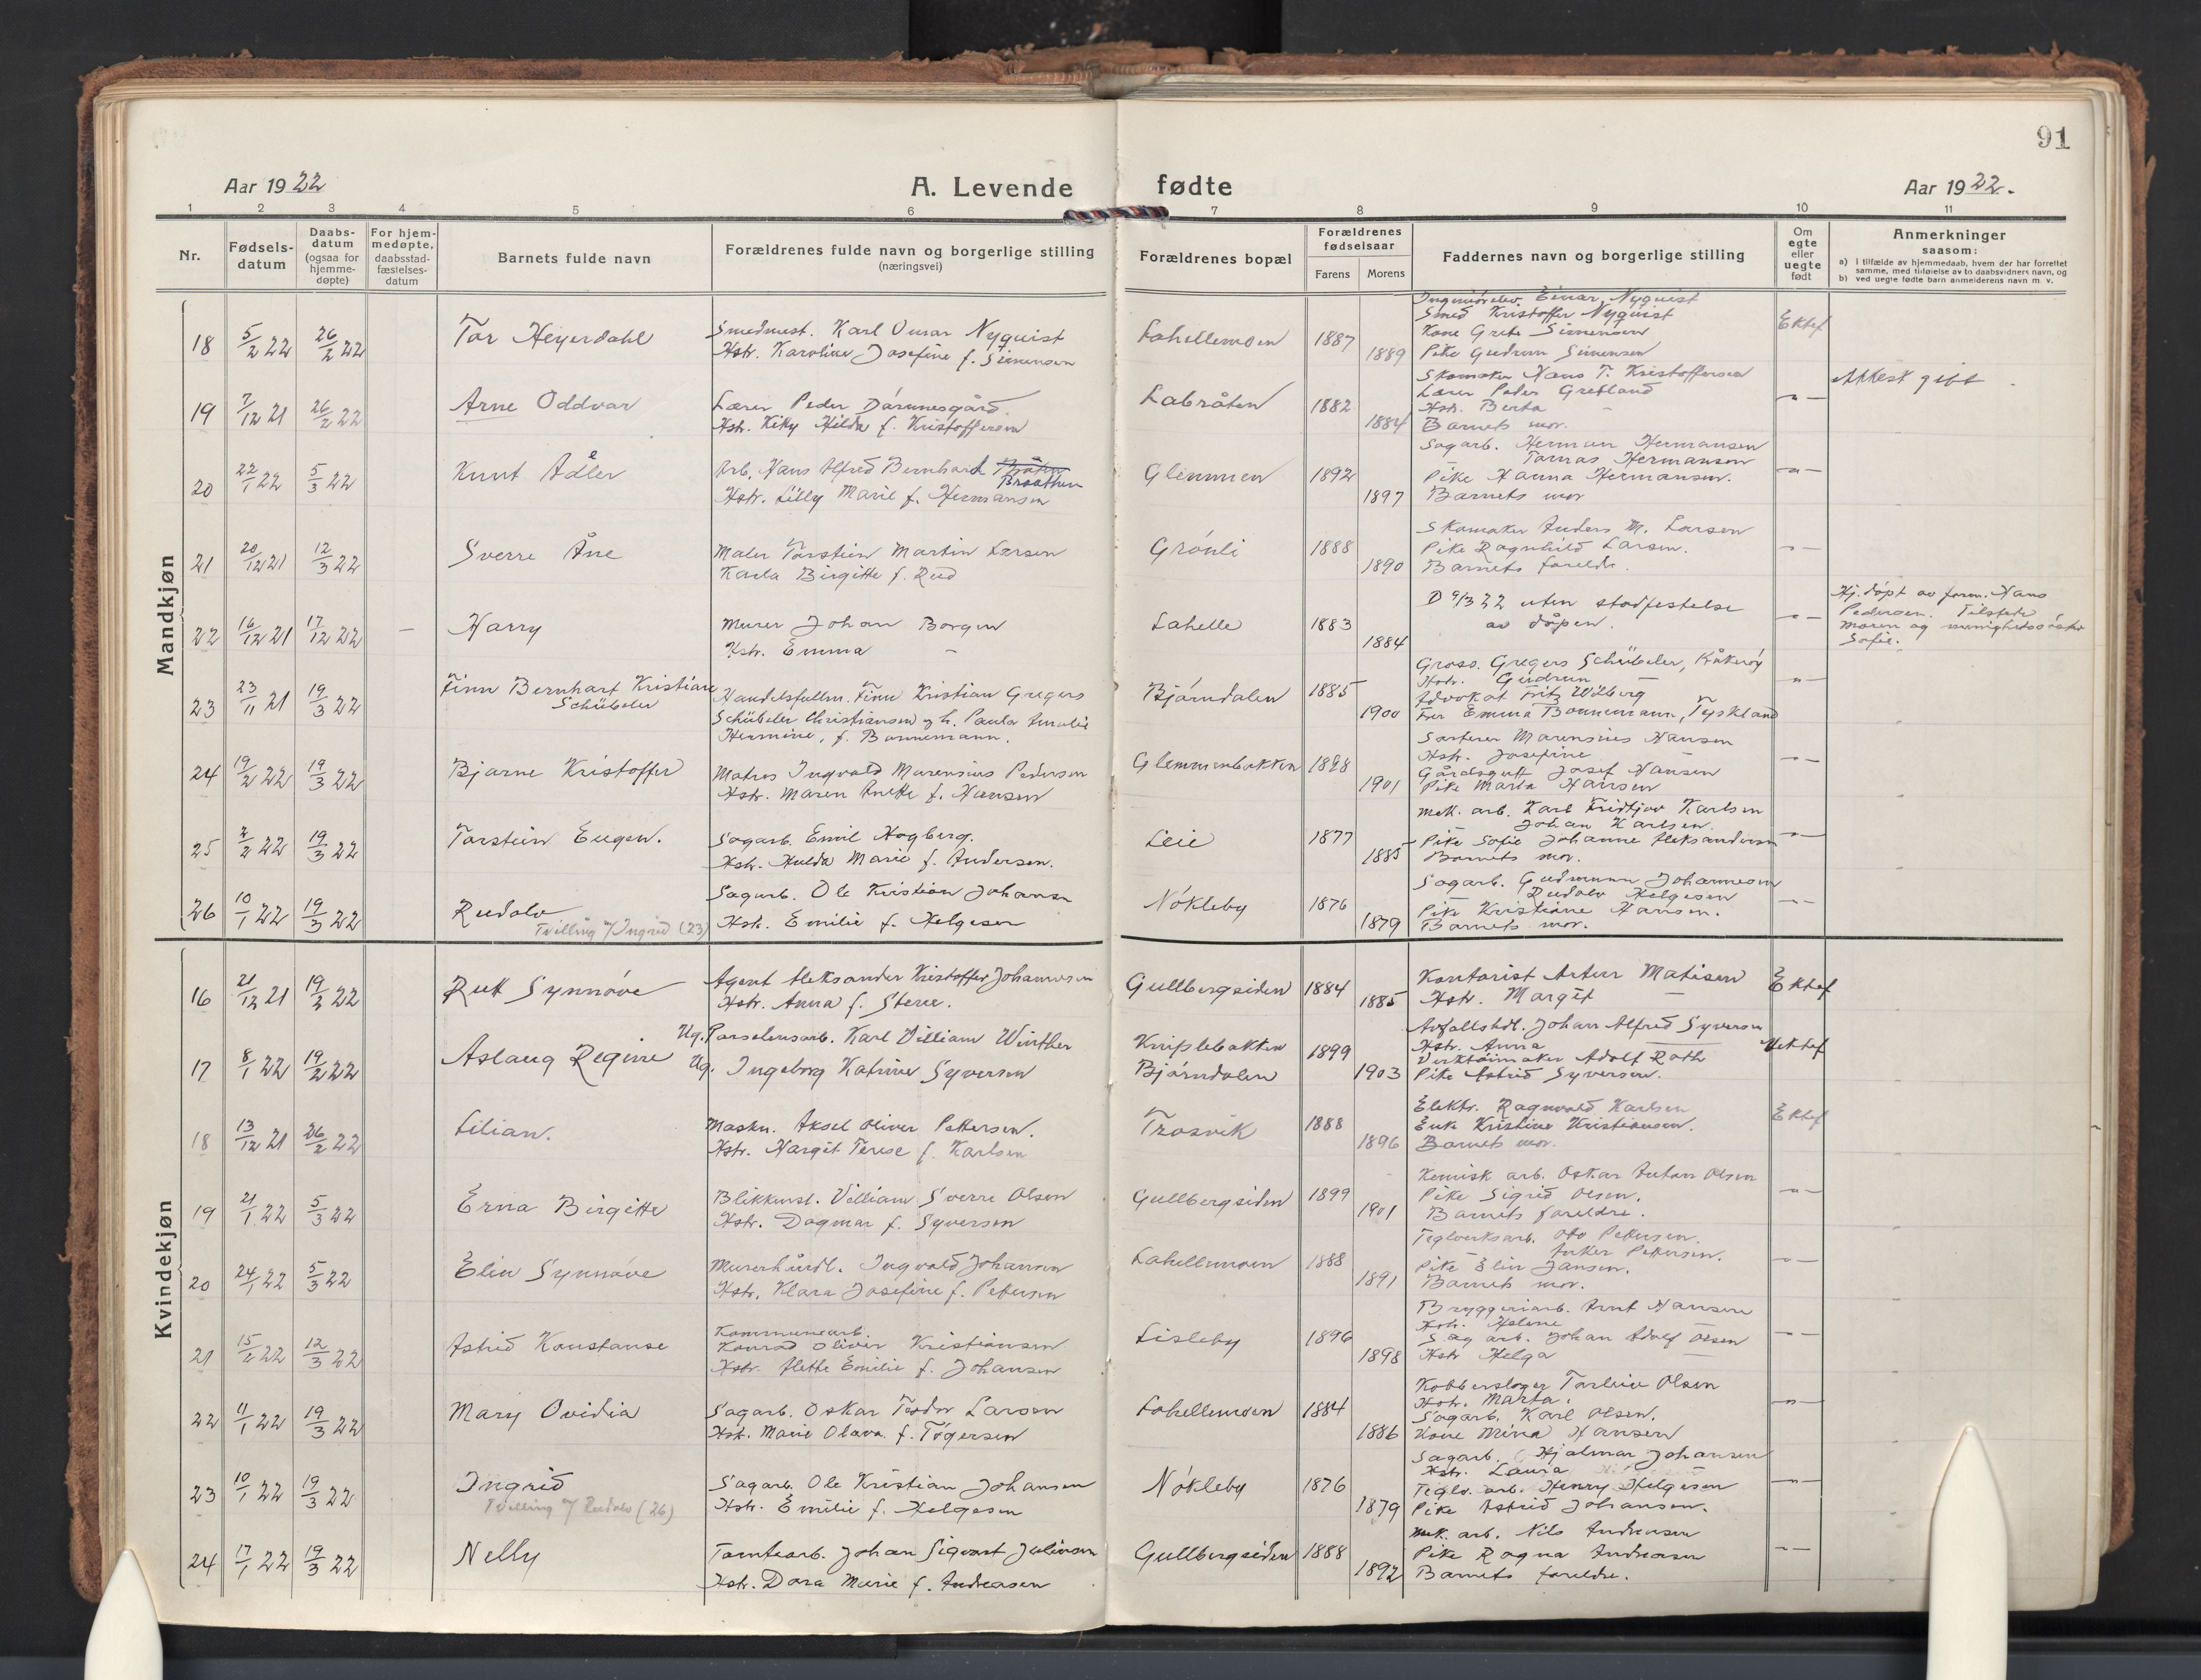 91
Aar 1922
A. Levende fødte
Aar 1922.
1 2 3 4 5 6 7 8 9 10 11
Nr.
Fødsels-
datum
Daabs-
datum
(ogsaa for
hjemme-
døpte)
For hjem-
medøpte,
daabsstad-
fæstelses-
datum
Barnets fulde navn
Forældrenes fulde navn og borgerlige stilling
(næringsvei)
Forældrenes bopæl
Forældrenes
fødselsaar
Farens Morens
Faddernes navn og borgerlige stilling
Om
egte
eller
uegte
født
Anmerkninger
saasom:
a) I tilfælde av hjemmedaab, hvem der har forrettet
samme, med tilføielse av to daabsvidners navn, og
b) ved uegte fødte barn anmelderens navn m. v.
Mandkjøn
18 5/2 22 26/2 22 Tor Heyerdahl
Smedmest. Karl Omar Nyquist
Hstr. Karoline Josefine f. Simensen
Lahellemoen 1887 1889
Ingeniørelev Einar Nyquist
Smed Kristoffer Nyquist
Kone Grete Simensen
Pike Gudrun Simensen
Ektef
19 7/12 21 26/2 22 Arne Oddvar
Lærer Peder Dårmesgård
Hstr. Kiky Hilda f. Kristoffersen
Labråten 1882 1884
Skomaker Hans T. Kristoffersen
Lærer Peder Grefland
Hstr. Berta -
Barnets mor.
-"-
Attest gift
20 22/1 22 5/3 22 Knut Adler
Arb. Hans Alfred Bernhard Braathen
Hstr. Lilly Marie f. Hermansen
Glemmen 1892 1897
Sagarb. Herman Hermansen
Hermansen
Pike Hanna Hermansen.
Barnets mor
-"-
21 20/12 21 12/3 22 Sverre Åne
Maler Torstein Martin Larsen
Karla Birgitte f. Rud
Grönli 1888 1890
Skomaker Anders M. Larsen
Pike Ragnhild Larsen.
Barnets foreldre.
-"-
22 16/12 21 17/12 22 - Harry
Murer Johan Borgen
Hstr. Emma -
Lahelle 1883 1884
D 9/3 22 uten stadfestelse
av dåpen.
-"-
Hj. döpt av form. Hans
Pedersen. Tilstede
moren og menighetssöster
Sofie.
23 23/11 21 19/3 22 Finn Bernhart Kristian
Schübeler
Handelsfullm. Finn Kristian Gregers
Schübeler Christiansen og h. Paula Amalie
Hermine, f. Bonnemann.
Bjørndalen 1885 1900
Gross. Gregers Schübeler, Kråkeröy
Hstr. Gudrun -
Advokat Fritz Wilberg
Fru Emma Bonnemann, Tyskland
-"-
24 19/2 22 19/3 22 Bjarne Kristoffer
Matros Ingvald Marensius Pedersen
Hstr. Maren Anette f. Hansen
Glemmenbakken 1898 1901
Sorterer Marensius Hansen
Hstr. Josefine -
Gårdsgutt Josef Hansen
Pike Marta Hansen
-"-
25 2/2 22 19/3 22 Torstein Eugen.
Sagarb. Emil Hogberg.
Hstr. Hulda Marie f. Andersen.
Leie 1877 1885
Mek. arb. Karl Fridtjov Karlsen
Johan Karlsen.
Pike Sofie Johanne Aleksandersen
Barnets mor.
-"-
26 10/1 22 19/3 22 Rudolv
Tvilling m/Ingrid (23)
Sagarb. Ole Kristian Johansen
Hstr. Emilie f. Helgesen
Nökleby 1876 1879
Sagarb. Gudmunn Johannesen
Rudolv Helgesen
Pike Kristiane Hansen.
Barnets mor.
-"-
Kvindekjøn
16 21/12 21 19/2 22 Rut Synnöve
Agent Aleksander Kristoffer Johannesen
Hstr. Anna f. Stene.
Gullbergsiden 1884 1885
Kontorist Artur Matisen
Hstr. Margit -
Ektef
17 8/1 22 19/2 22 Aslaug Regine
Ug. Porselensarb. Karl Villiam Winther
Ug. Ingeborg Katrine Syversen
Kniplebakken
Bjørndalen 1899 1903
Avfallshdl. Johan Alfred Syversen
Hstr. Anna -
Verktöimaker Adolf Roth
Pike Astrid Syversen.
Uektef
18 13/12 21 26/2 22 Lilian.
Maskn. Aksel Oliver Pettersen.
Hstr. Margit Terese f. Karlsen
Trosvik 1888 1896
Elektr. Ragnvald Karlsen
Enke Kristine Kristiansen.
Barnets mor.
Ektef
19 21/1 22 5/3 22 Erna Birgitte
Blikkensl. Villiam Sverre Olsen
Hstr. Dagmar f. Syversen
Gullbergsiden 1899 1901
Kemisk arb. Oskar Anton Olsen
Pike Sigrid Olsen.
Barnets foreldre.
-"-
20 24/1 22 5/3 22 Elin Synnöve
Murerhåndl. Ingvald Johansen
Hstr. Klara Josefine f. Pettersen
Lahellemoen 1888 1891
Teglverksarb. Otto Pettersen.
Anker Pettersen.
Pike Elin Jansen.
Barnets mor.
-"-
21 15/2 22 12/3 22 Astrid Konstanse
Kommunearb.
Konrad Oliver Kristiansen
Hstr. Alette Emilie f. Johansen
Lisleby 1896 1898
Bryggeriarb. Arnt Hansen
Hstr. Helene
Sagarb. Johan Adolf Olsen
Hstr Helga -
-"-
22 11/1 22 19/3 22 Mary Ovidia
Sagarb. Oskar Teodor Larsen
Hstr. Marie Olava f. Tögersen
Lahellemoen 1884 1886
Kobberslager Torleiv Olsen
Hstr. Marta.
Sagarb. Karl Olsen.
Kone Mina Hansen
-"-
23 10/1 22 19/3 22 Ingrid
Tvilling m/ Rudolv (26)
Sagarb. Ole Kristian Johansen
Hstr. Emilie f. Helgesen
Nökleby 1876 1879
Sagarb. Hjalmar Johansen
Hstr. Laura
Teglv. arb. Henry Helgesen
Pike Astrid Johansen.
-"-
24 17/1 22 19/3 22 Nelly
Tomtearb. Johan Sigvart Julinsen
Hstr. Dora Marie f. Andreasen
Gullbergsiden 1888 1892
Mek. arb. Nils Andreasen
Pike Ragna Andreasen
Barnets foreldre.
-"-